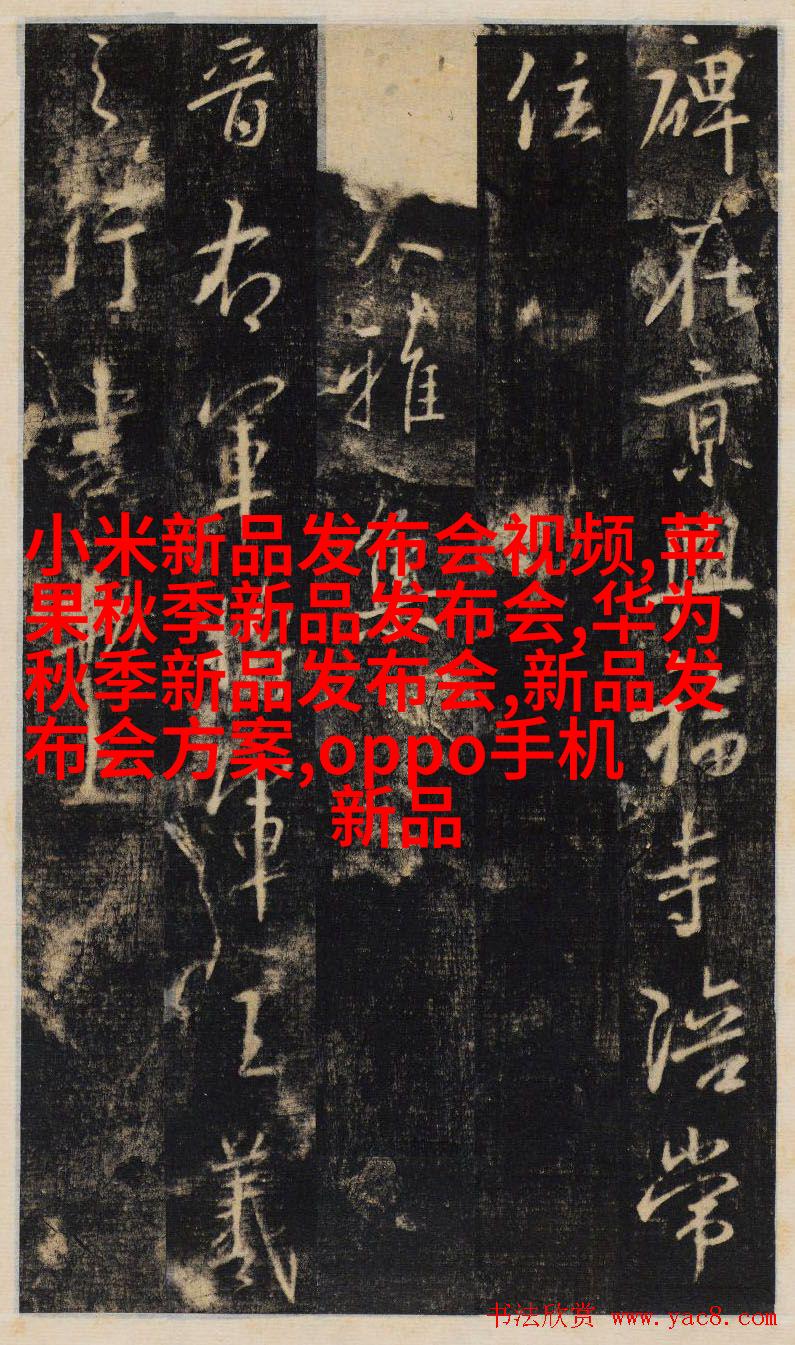 碑在京興福寺陪常
住
大雅集
晉右軍將軍王羲
之行書
小米新品发布会视频,苹
果秋季新品发布会,华为
秋季新品发布会,新品发
布会方案,oppo手机
新品
书法欣赏 www.yac8.com